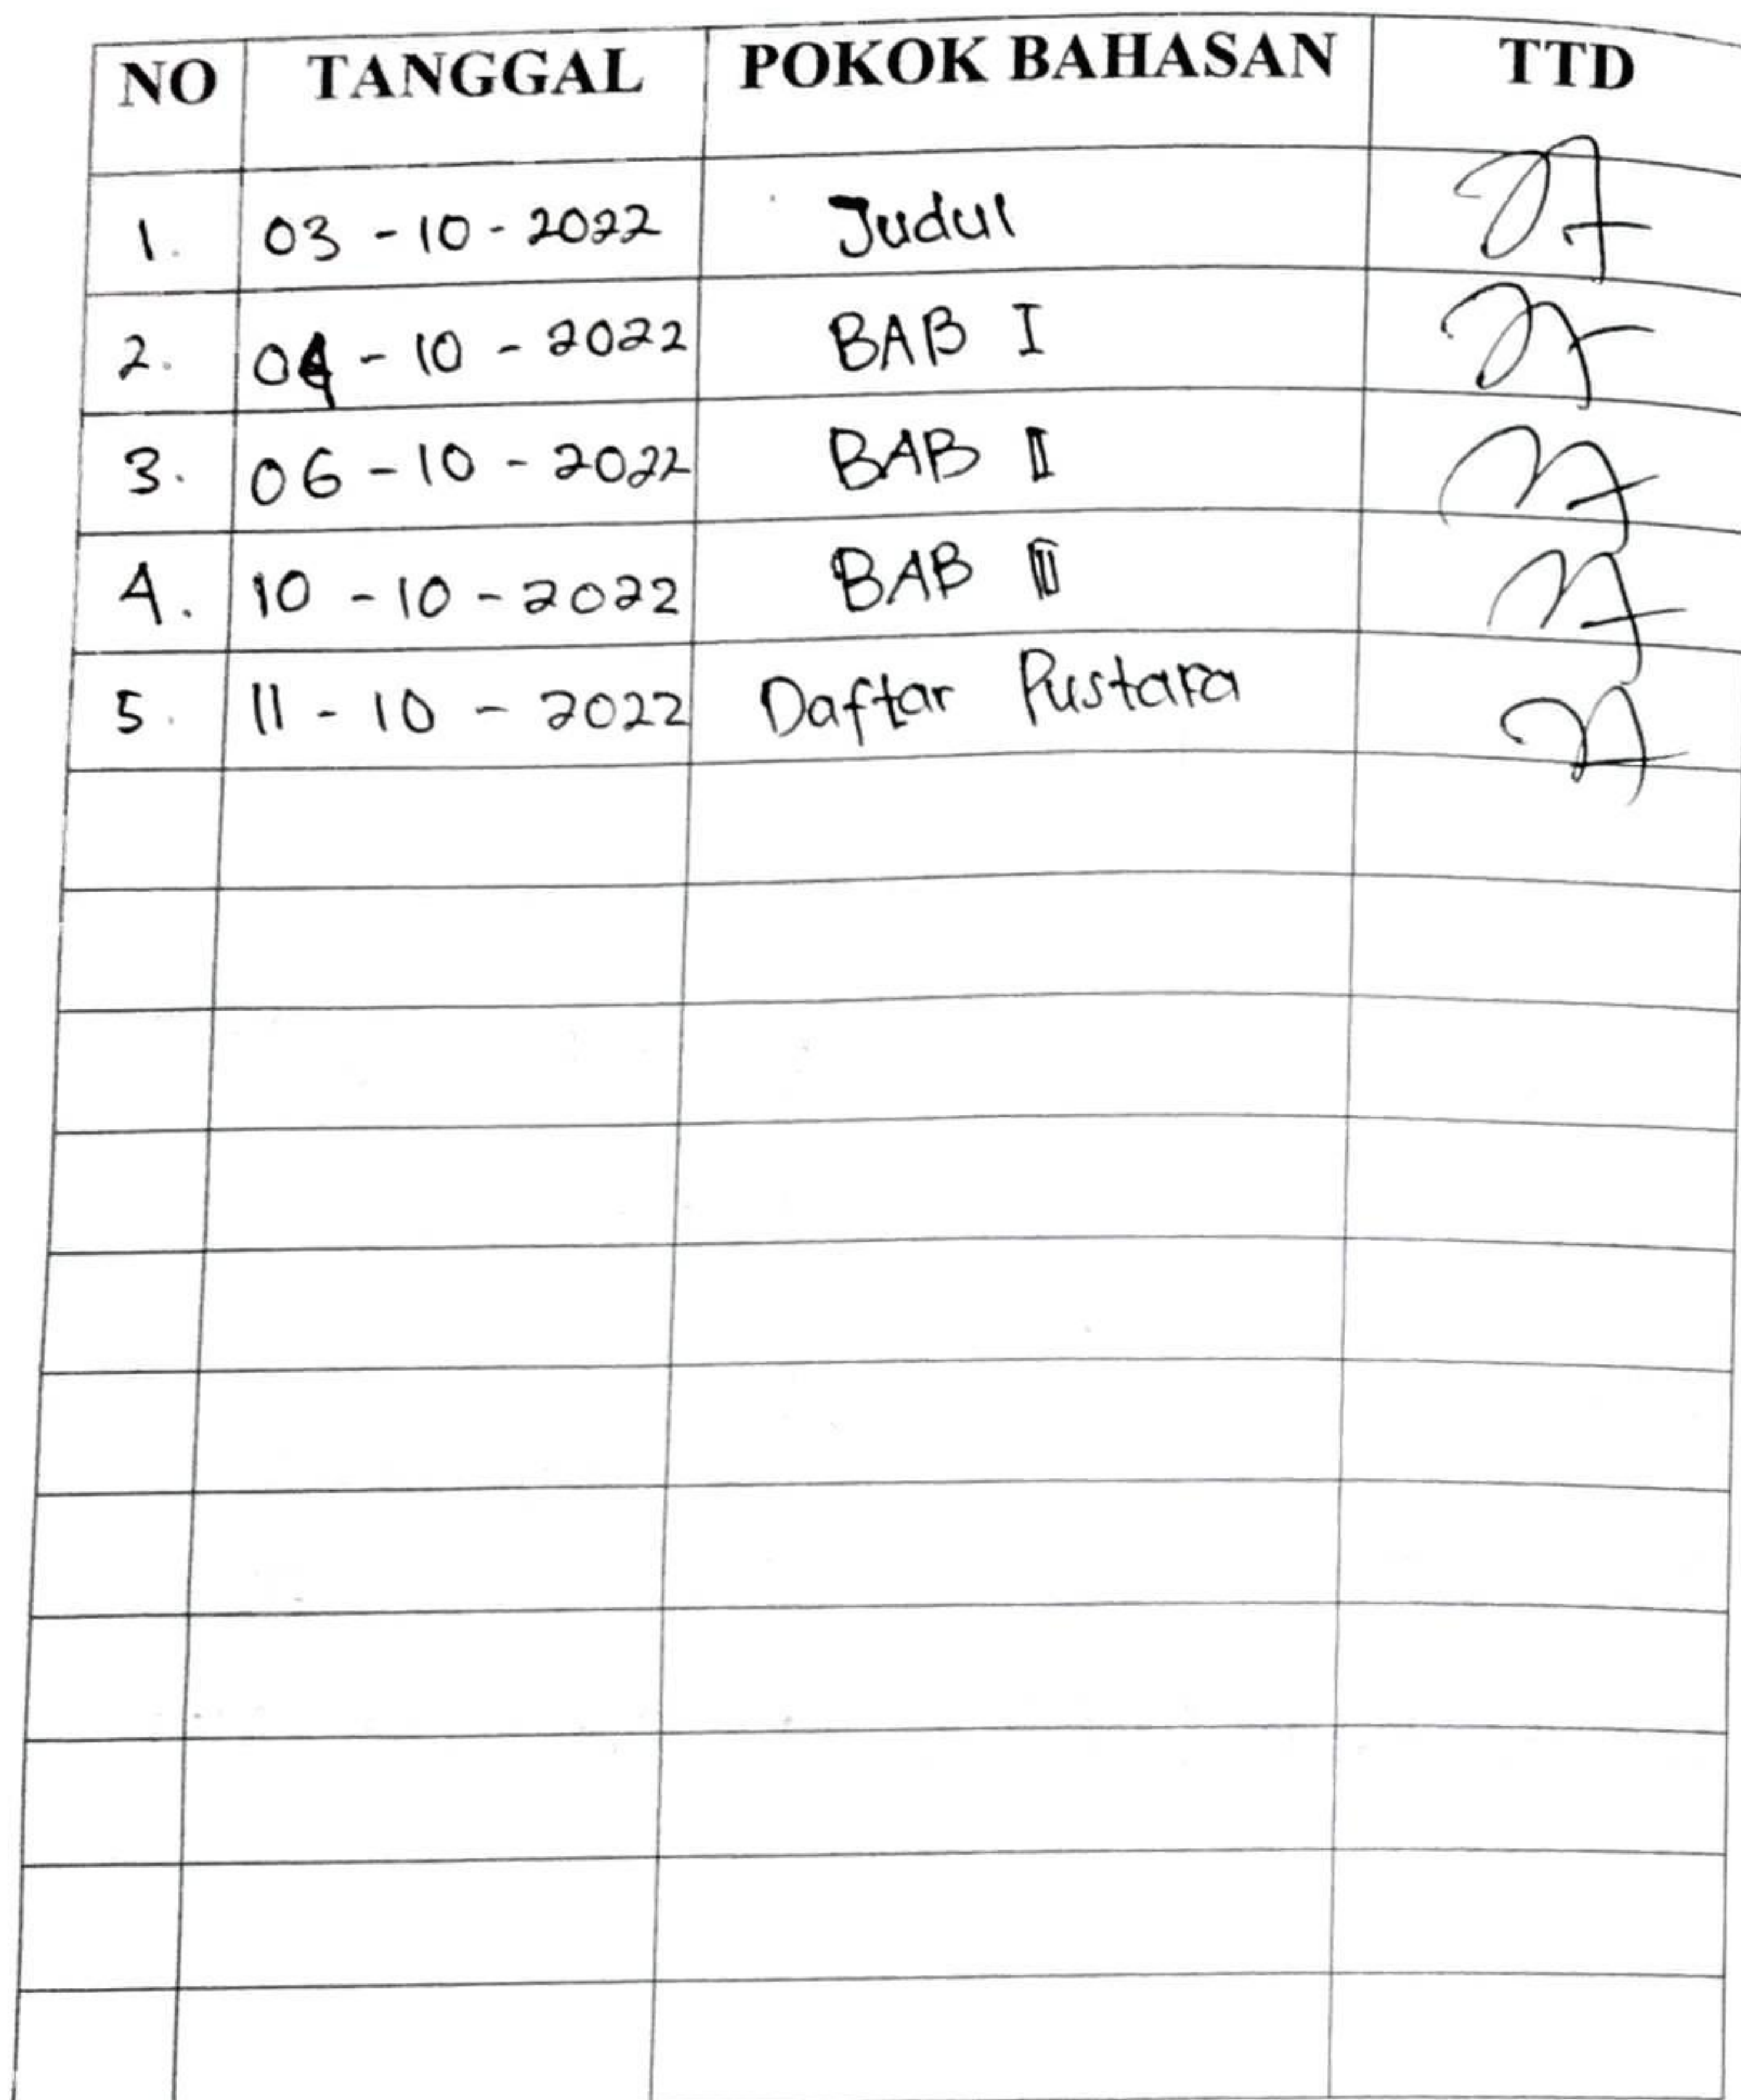 NO TANGGAL POKOK BAHASAN TTD
1. 03 - 10 - 2022 Judul
2. 04 - 10 - 2022 BAB I
3. 06 - 10 - 2022 BAB II
4. 10 - 10 - 2022 BAB III
5. 11 - 10 - 2022 Daftar Pustaka